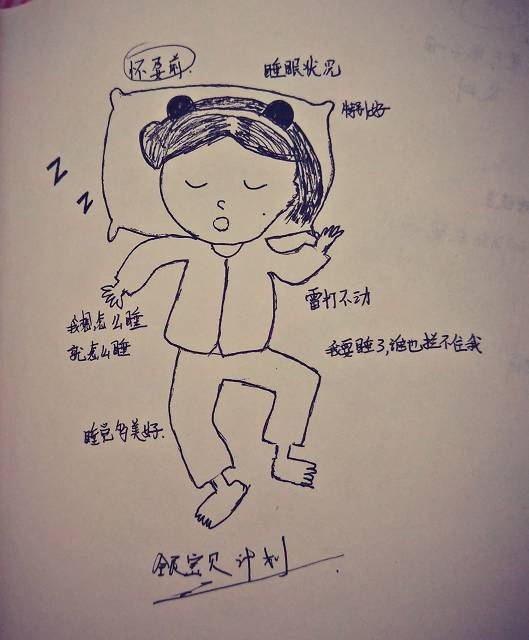 怀孕前.
睡眠状况
特别好
Z
Z
我想怎么睡
就怎么睡
雷打不动
我要睡了,谁也拦不住我
睡觉多美好.
宝贝计划